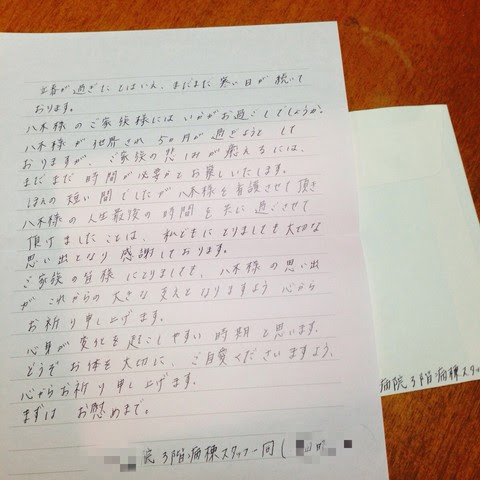 立春が過ぎたとはいえ、まだまだ寒い日が続いて
おります。
八木様のご家族様にはいかがお過ごしでしょうか。
八木様が他界され5ヶ月が過ぎようとして
おりますが、ご家族の悲しみが癒えるには、
まだまだ時間が必要かとお察しいたします。
ほんの短い間でしたが八木様を看護させて頂き
八木様の人生最後の時間を共に過ごさせて
頂けましたことは、私どもにとりましても大切な
思い出となり感謝しております。
ご家族の皆様にとりましても、八木様の思い出
がこれからの大きな支えとなりますよう心から
お祈り申し上げます。
心身が変化を起こしやすい時期と思います。
どうぞお体を大切に、ご自愛くださいますよう、
心からお祈り申し上げます。
まずはお慰めまで。
院3階病棟スタッフ一同
病院3階病棟スタッ